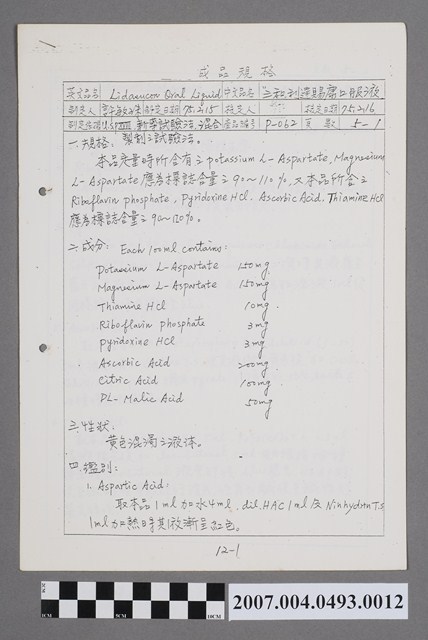 成品規格
英文品名 Lidaucon Oral Liquid 中文品名 液
制定人 制定日期 75.2.15 核定人 核定日期 75.2.16
制定依據 混合 產品編号 P-062 頁數 5-1
一.規格: 製剤之試驗法。
本品定量時所含有之potassium L-Aspartate, Magnesium
L-Aspartate應為標誌含量之90~110%,又本品所含之
Riboflavin phosphate, Pyridorine HCl. Ascorbic Acid. Thiamine HCl
應為標誌含量之90~120%。
二.成分: Each 100ml contains:
potassium L-Aspartate 150mg
Magnesium L-Aspartate 150mg
Thiamine HCl 10mg.
Riboflavin phosphate 3mg
pyridorine HCl 3mg
Ascorbic Acid 200mg
Citric Acid 100mg.
DL-Malic Acid 50mg
三.性狀:
黃色混濁之液体。
四.鑑別:
1. Aspartic Acid:
取本品1ml加水4ml, dil.HAC 1ml及Ninhydrin T.S
1ml加熱時其液漸呈紅色。
12-1
1CM 5CM 10CM
2007.004.0493.0012